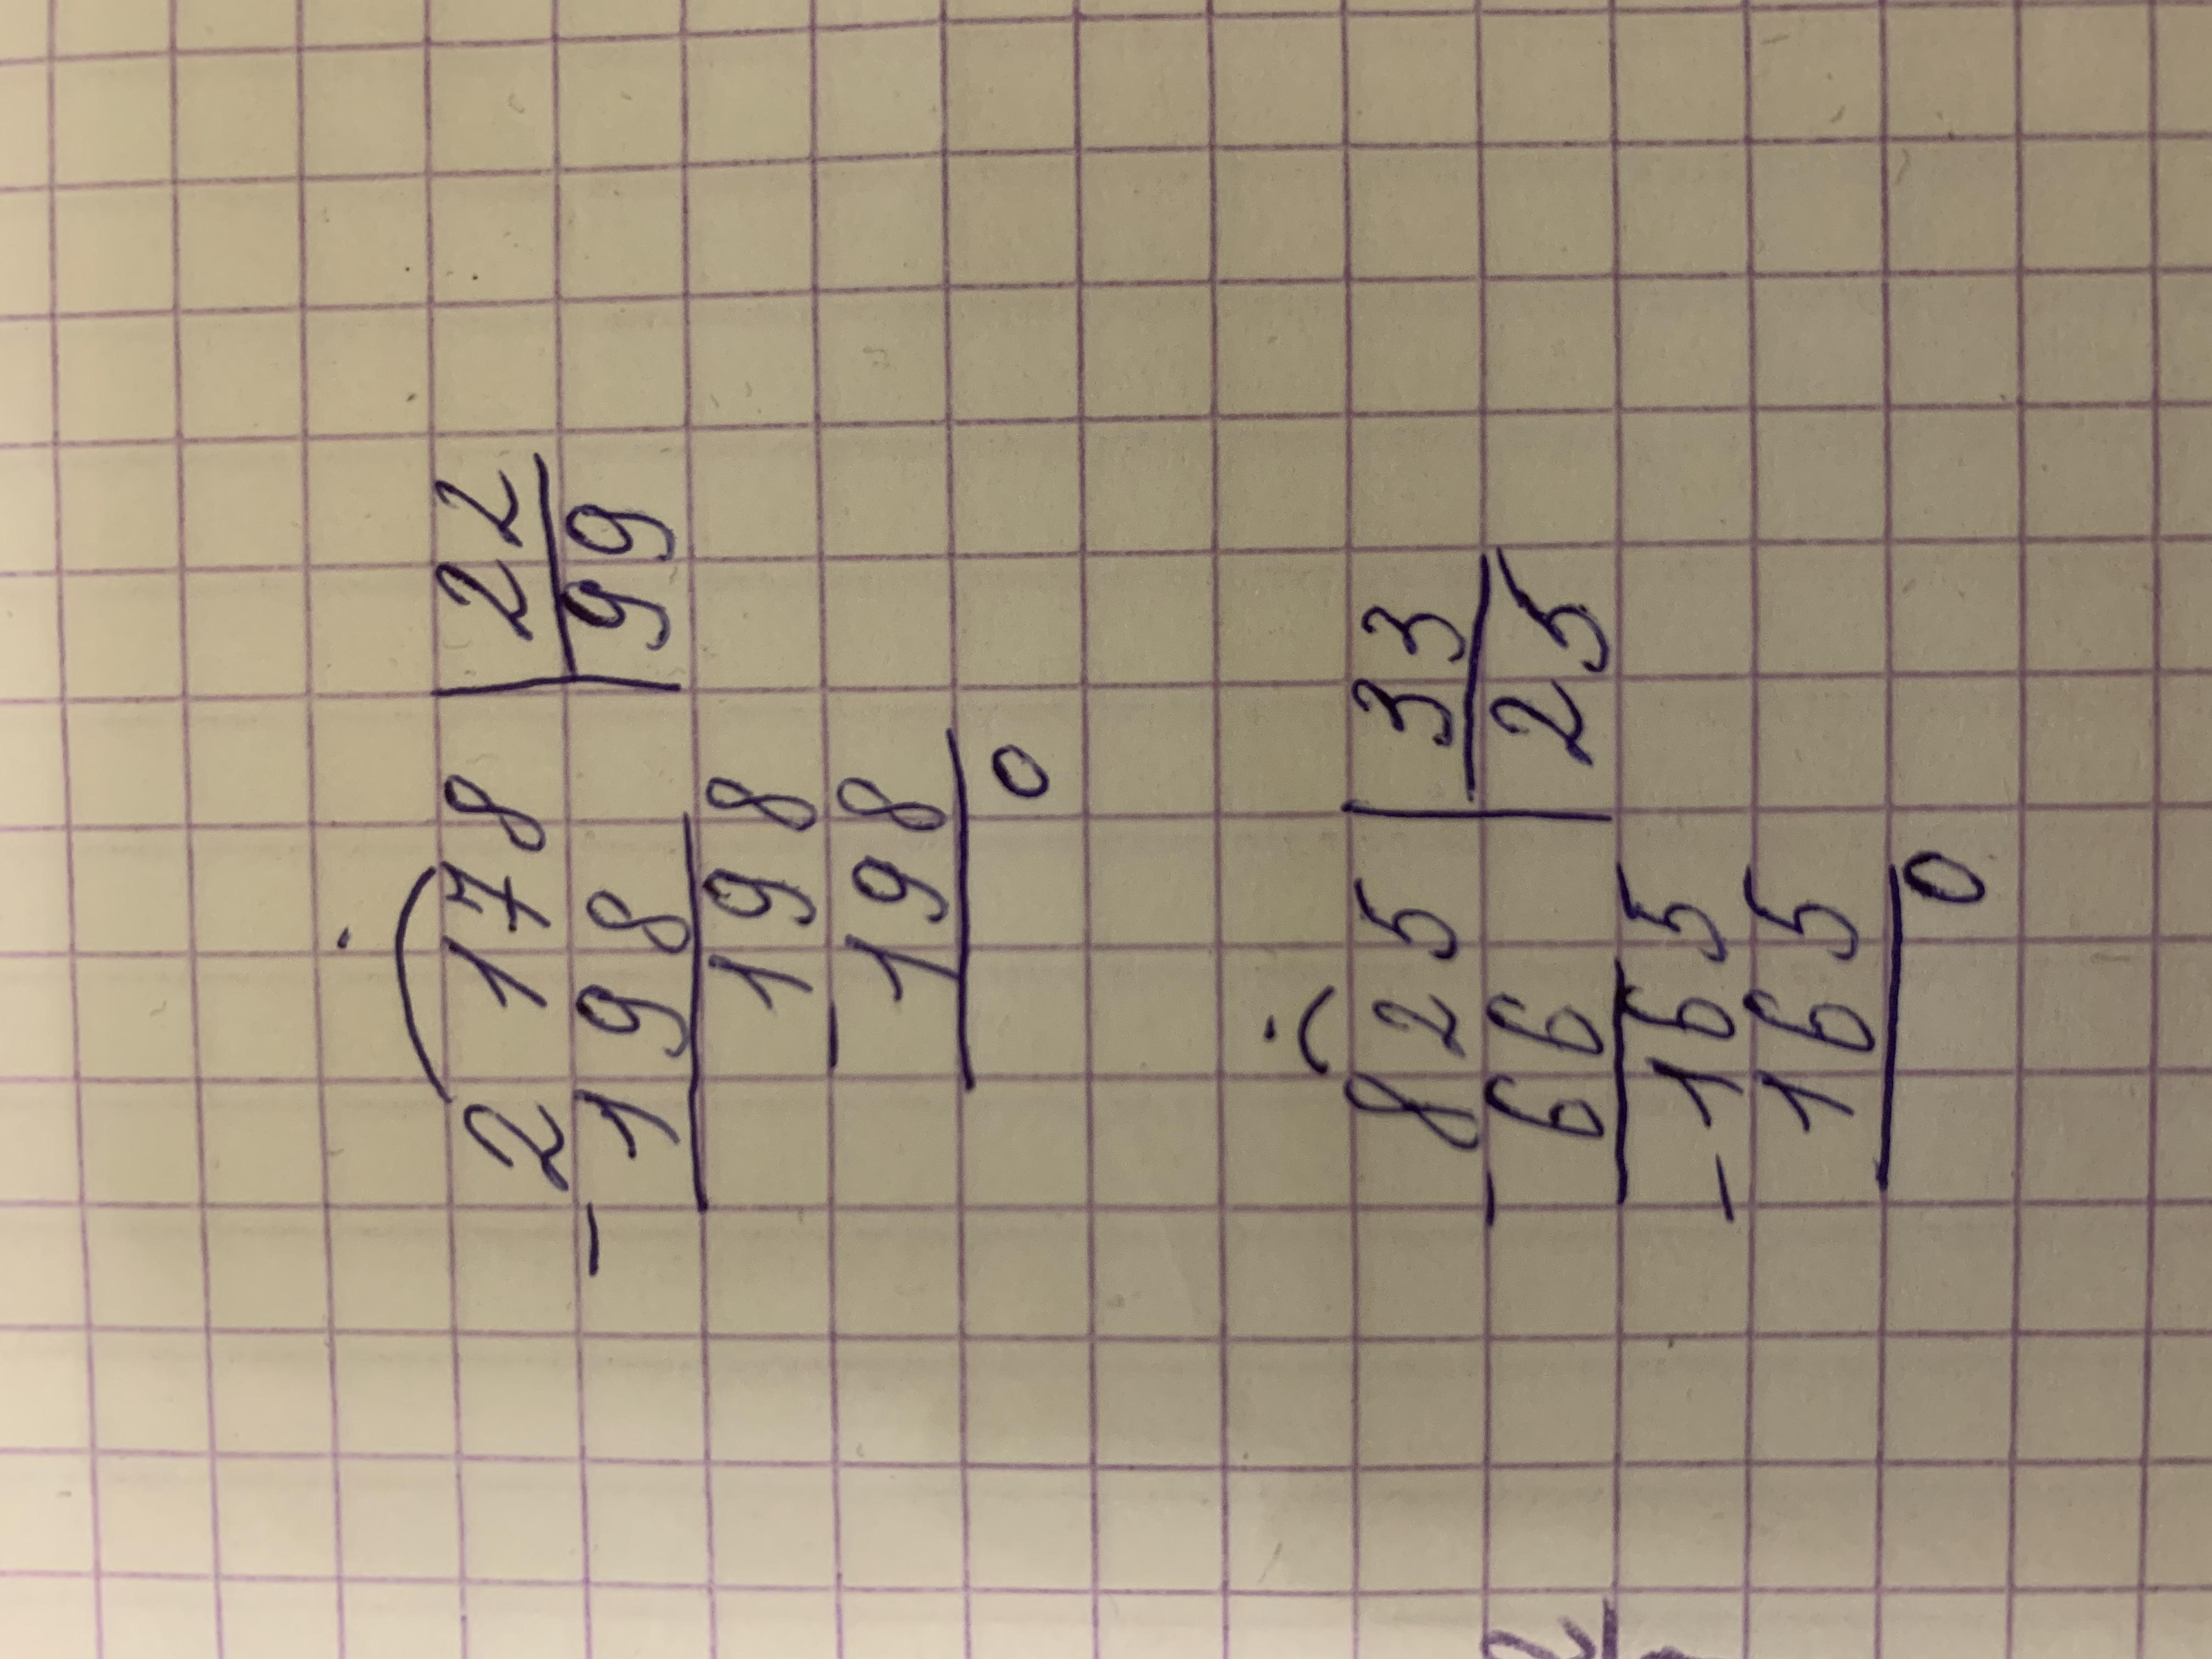 2178 | 22
- 198 | 99
198
- 198
0
825 | 33
- 66 | 25
- 165
165
0